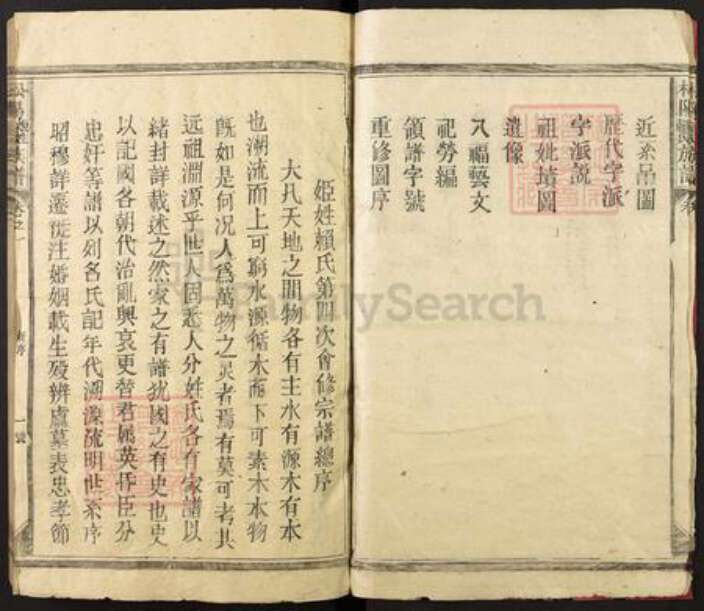 近系吊圖
歷代字派
字派說
祖妣墳圖
遺像
八福藝文
祀勞編
領譜字號
重修圖序
姬姓賴氏第四次會修宗譜總序
大凡天地之間物各有主水有源木有本
也溯流而上可窮水源循木而下可索木本物
旣如是何況人爲萬物之灵者焉有莫可考其
远祖淵源乎世人固悉人分姓氏各有家譜以
緒封詳載述之然家之有譜犹國之有史也史
以記國各朝代治亂興衰更替君属英昏臣分
忠奸等譜以列各氏記年代溯源流明世系序
昭穆詳遷徙注婚姻載生殁辨盧墓表忠孝節
FamilySearch